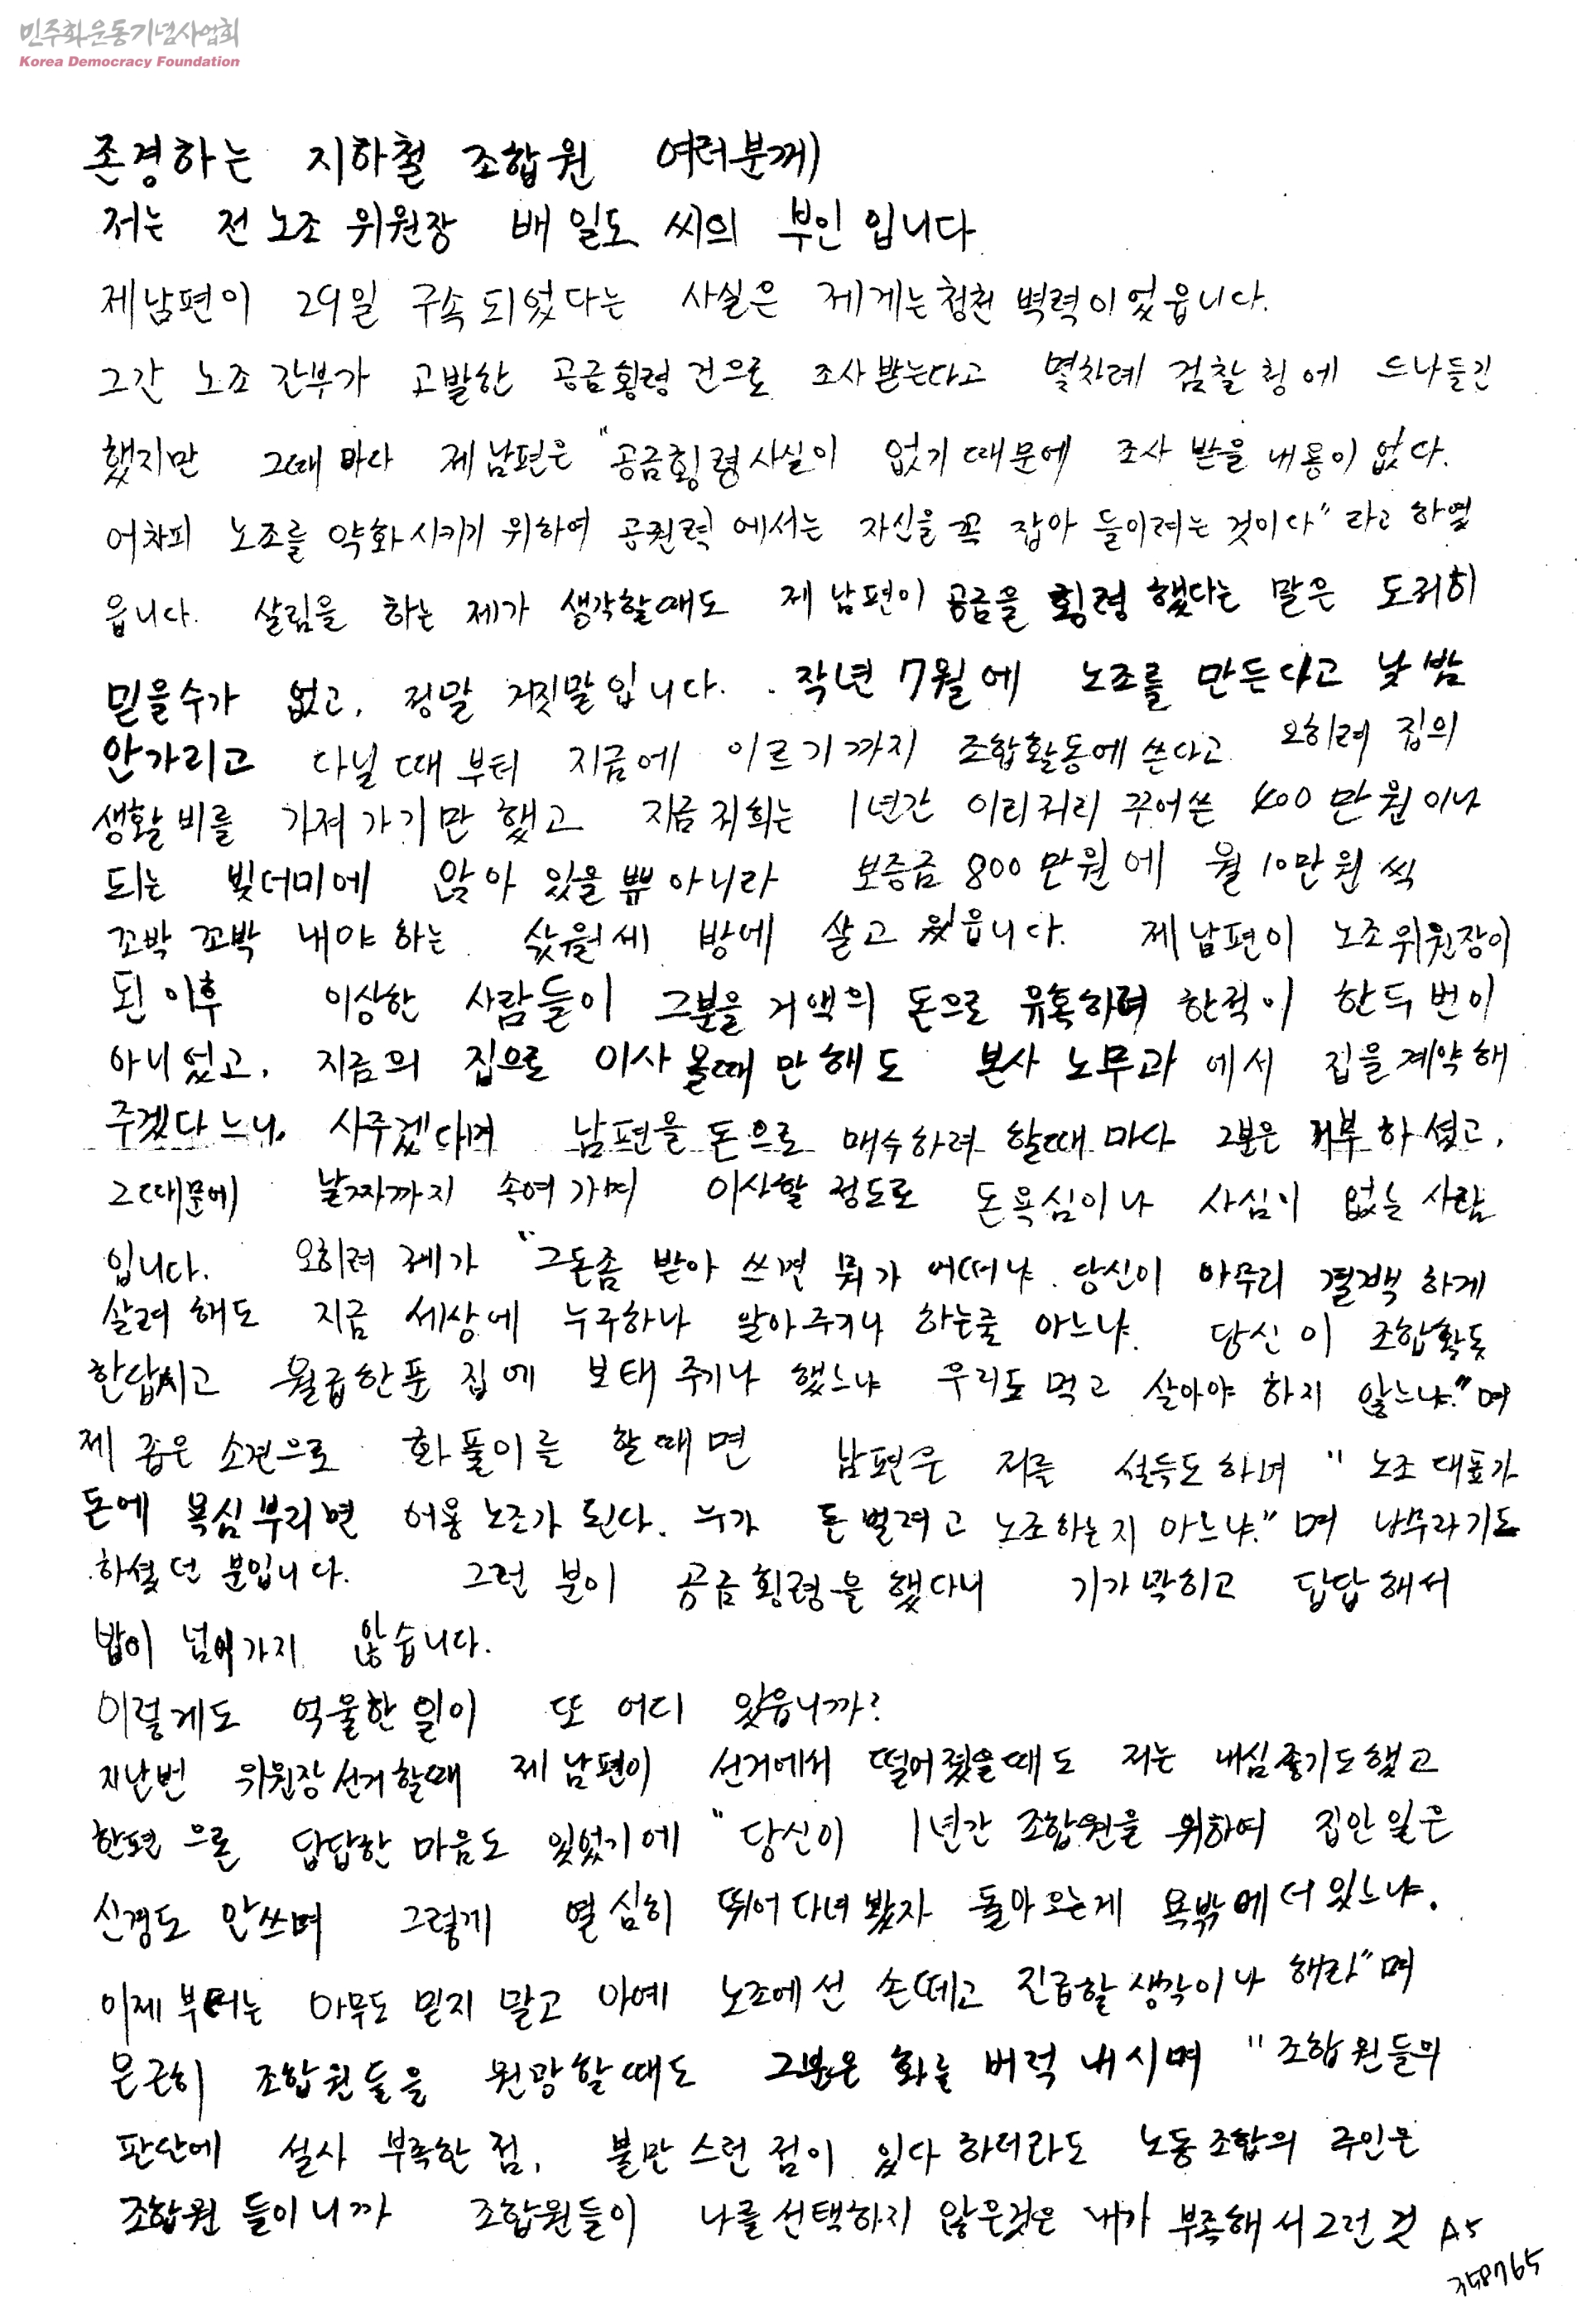 민주화운동기념사업회
Korea Democracy Foundation
존경하는 지하철 조합원 여러분께)
저는 전 노조 위원장 배일도 씨의 부인입니다
제남편이 29일 구속되었다는 사실은 제게는 청천 벽력이었읍니다.
그간 노조 간부가 고발한 공금횡령 건으로 조사받는다고 몇차례 검찰청에 드나들긴
했지만 그때마다 제남편은 "공금횡령사실이 없기때문에 조사 받을 내용이 없다.
어차피 노조를 약화시키기 위하여 공권력에서는 자신을 꼭 잡아 들이려는 것이다"라고 하였
읍니다. 살림을 하는 제가 생각할때도 제남편이 공금을 횡령했다는 말은 도저히
믿을수가 없고, 정말 거짓말입니다. 작년 7월에 노조를 만든다고 낮밤
안가리고 다닐때부터 지금에 이르기까지 조합활동에 쓴다고 오히려 집의
생활비를 가져가기만 했고 지금저희는 1년간 이리저리 꾸어쓴 400만원이나
되는 빚더미에 앉아 있을 뿐아니라 보증금 800만원에 월 10만원씩
꼬박 꼬박 내야하는 삯월세 방에 살고 있읍니다. 제남편이 노조위원장이
된 이후 이상한 사람들이 그분을 거액의 돈으로 유혹하려 한적이 한두번이
아니었고, 지금의 집으로 이사 올때만해도 본사 노무과에서 집을 계약해
주겠다느니, 사주겠다며 남편을 돈으로 매수하려 할때마다 그분은 거부하셨고,
그때문에 날짜까지 속여가며 이상할 정도로 돈욕심이나 사심이 없는 사람
입니다. 오히려 제가 "그돈좀 받아 쓰면 뭐가 어떠냐. 당신이 아무리 결백하게
살려해도 지금 세상에 누구하나 알아주거나 하는줄 아느냐. 당신이 조합활동
한답시고 월급한푼 집에 보태주거나 했느냐 우리도 먹고 살아야 하지 않느냐."며
제 좁은 소견으로 화풀이를 할때면 남편은 저를 설득도하며 "노조대표가
돈에 욕심부리면 어용노조가 된다. 누가 돈벌려고 노조하는지 아느냐."며 나무라기도
하셨던 분입니다. 그런 분이 공금횡령을 했다니 기가막히고 답답해서
밥이 넘어가지 않습니다.
이렇게도 억울한 일이 또 어디 있읍니까?
지난번 위원장선거할때 제남편이 선거에서 떨어졌을때도 저는 내심좋기도했고
한편으론 답답한 마음도 있었기에 "당신이 1년간 조합원을 위하여 집안일은
신경도 안쓰며 그렇게 열심히 뛰어다녀봤자 돌아오는게 욕밖에더있느냐.
이제부터는 아무도 믿지 말고 아예 노조에선 손떼고 진급할생각이나 해라"며
은근히 조합원들을 원망할때도 그분은 화를 버럭 내시며 "조합원들의
판단에 설사 부족한 점, 불만스런 점이 있다 하더라도 노동조합의 주인은
조합원들이니까 조합원들이 나를 선택하지 않은것은 내가 부족해서그런 것
A5
358765